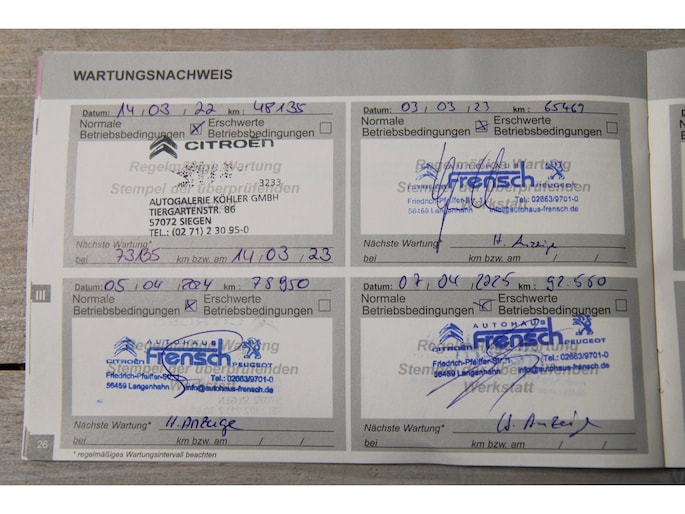 WARTUNGSNACHWEIS
Datum: 14 / 03 / 22 km: 48135
Normale Betriebsbedingungen ☒ Erschwerte Betriebsbedingungen ☐
CITROËN
Regelmäßige Wartung
Stempel der überprüfenden
3233
AUTOGALERIE KÖHLER GMBH
TIERGARTENSTR. 86
57072 SIEGEN
TEL.: (02 71) 2 30 95-0
Nächste Wartung*
bei 73135 km bzw. am 14 / 03 / 23
Datum: 03 / 03 / 23 km: 65469
Normale Betriebsbedingungen ☒ Erschwerte Betriebsbedingungen ☐
Regelmäßige Wartung
AUTOHAUS
Frensch
PEUGEOT
Stempel der überprüfenden
Friedrich-Pfeiffer-Str. 1 Tel.: 02663/9701-0
56459 Langenhahn info@autohaus-frensch.de
Werkstatt
Nächste Wartung* lt. Anzeige
bei km bzw. am / /
Datum: 05 / 04 / 2024 km: 78950
Normale Betriebsbedingungen ☒ Erschwerte Betriebsbedingungen ☐
AUTOHAUS
Frensch
CITROËN PEUGEOT
Stempel der überprüfenden
Friedrich-Pfeiffer-Str. Tel.: 02663/9701-0
56459 Langenhahn info@autohaus-frensch.de
Werkstatt
Nächste Wartung* lt. Anzeige
bei km bzw. am / /
Datum: 07 / 04 / 2025 km: 92.560
Normale Betriebsbedingungen ☒ Erschwerte Betriebsbedingungen ☐
AUTOHAUS
Frensch
CITROËN PEUGEOT
Friedrich-Pfeiffer-Str. 1 Tel.: 02663/9701-0
56459 Langenhahn info@autohaus-frensch.de
Werkstatt
Nächste Wartung* lt. Anzeige
bei km bzw. am / /
* regelmäßiges Wartungsintervall beachten
III
26